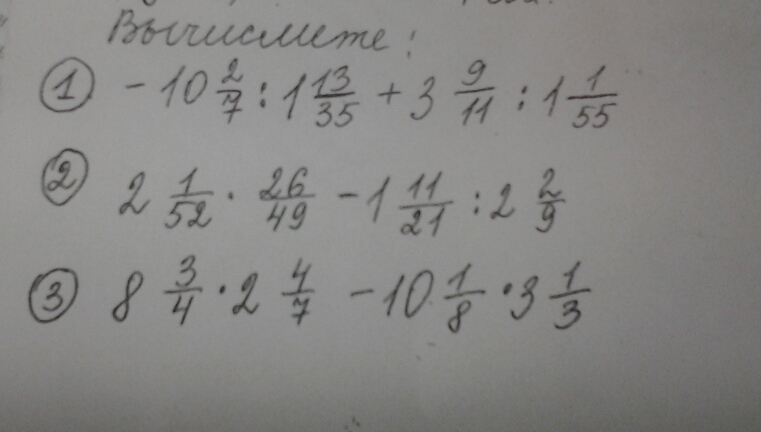 Вычислите:
① -10 2/7 : 1 13/35 + 3 9/11 : 1 1/55
② 2 1/52 · 26/49 - 1 11/21 : 2 2/9
③ 8 3/4 · 2 4/7 - 10 1/8 · 3 1/3